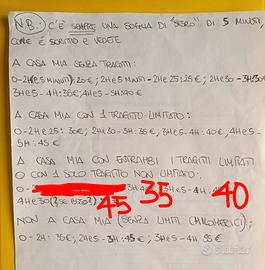 N.B.: C'È SEMPRE UNA SOGLIA DI "SFORO" DI 5 MINUTI,
COME È SCRITTO E VEDETE
A CASA MIA SENZA TRAGITTI:
0-2H(e5 MINUTI): 20€; 2He5 MINUTI-2He25: 25€; 2He30-3H:30€
3He5-4H:35€; 4He5-5H:40€
A CASA MIA CON 1 TRAGITTO LIMITATO:
0-2He25: 30€; 2He30-3H:35€; 3He5-4H:40€; 4He5-
5H:45€
A CASA MIA CON ENTRAMBI I TRAGITTI LIMITATI
O CON 1 SOLO TRAGITTO NON LIMITATO:
0-
45 35 40
NON A CASA MIA (SENZA LIMITI CHILOMETRICI):
0-2H: 35€; 2He5-3H:45€; 3He5-4H 55€